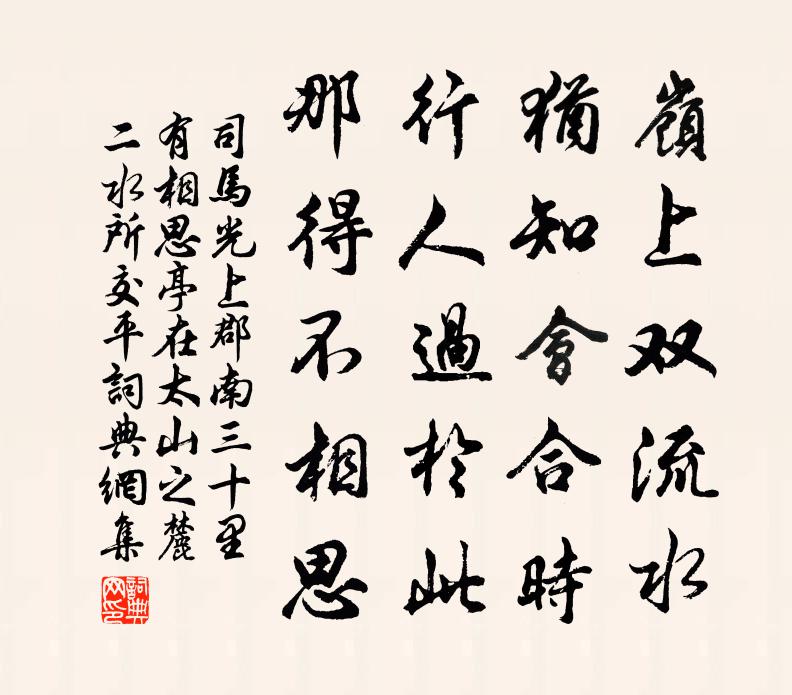 嶺上双流水
猶知會合時
行人過於此
那得不相思
司馬光上郡南三十里
有相思亭在太山之麓
二水所交平詞典網集
詞典
网印